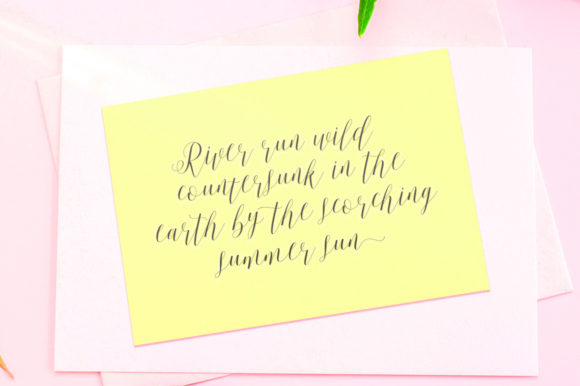 River run wild
countersunk in the
earth by the scorching
summer sun